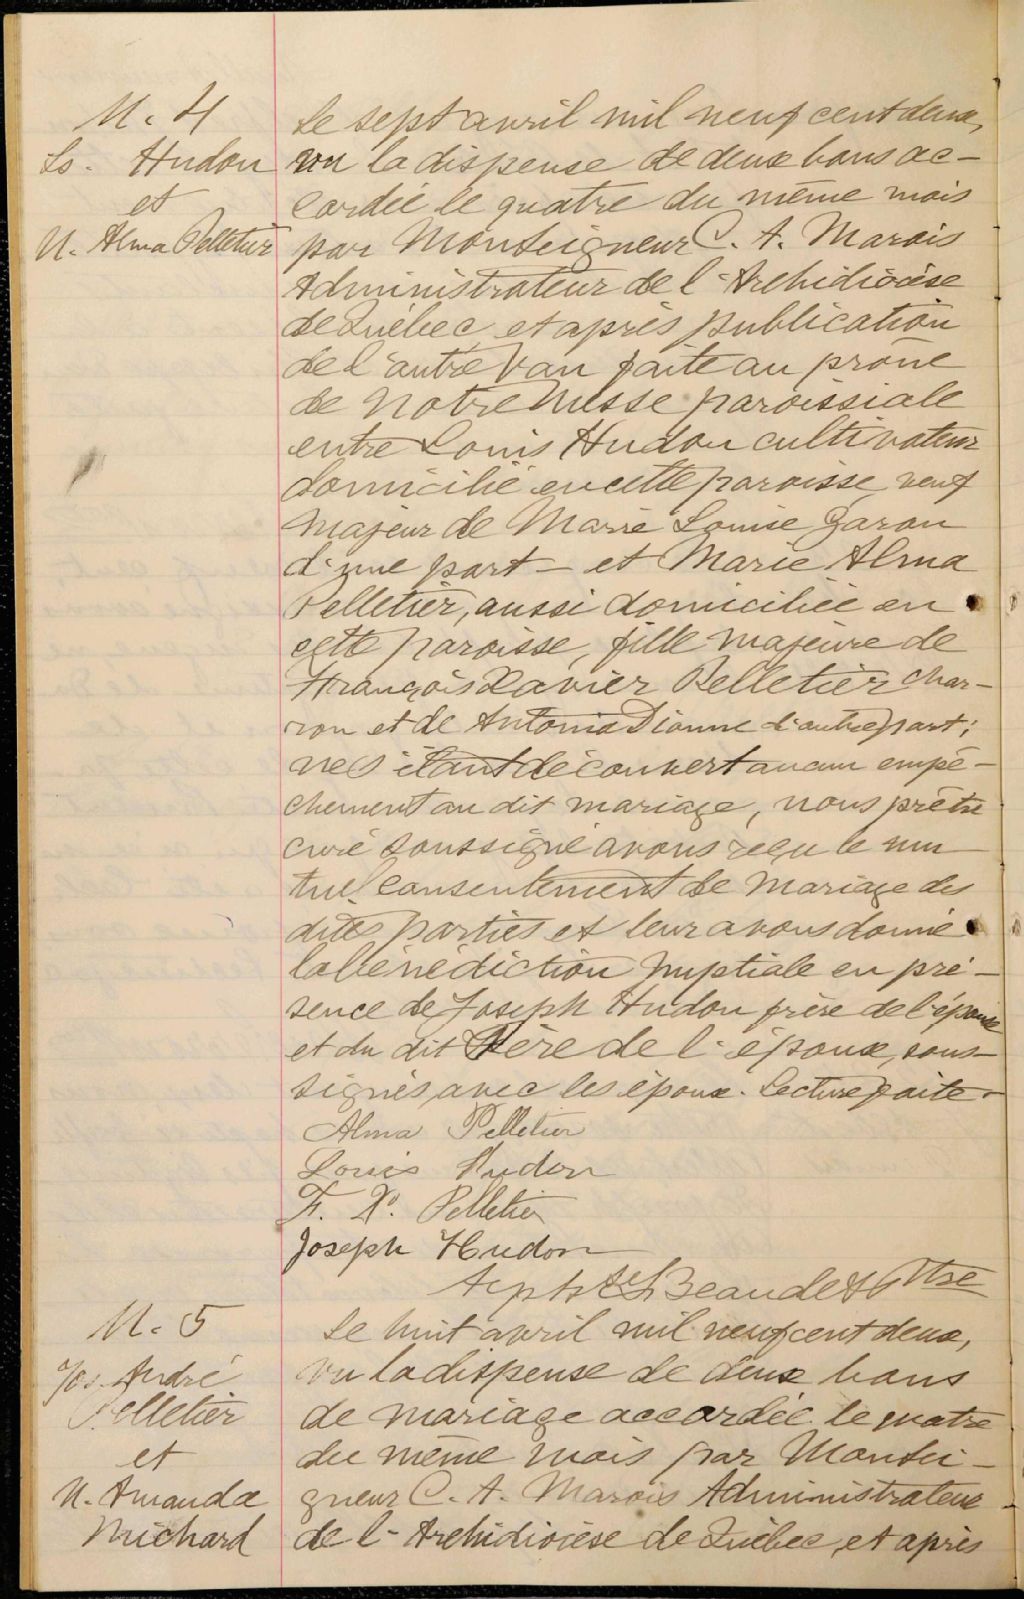 M. 4
Ls. Hudon
et
M. Alma Pelletier
Le sept avril mil neuf cent deux,
vu la dispense de deux bans ac-
cordée le quatre du même mois
par Monseigneur C. A. Marois
Administrateur de l'Archidiocèse
de Québec, et après publication
de l'autre ban faite au prône
de notre Messe paroissiale
entre Louis Hudon cultivateur
domicilié en cette paroisse, veuf
majeur de Marie Louise Garon
d'une part - et Marie Alma
Pelletier, aussi domiciliée en
cette paroisse, fille majeure de
François Xavier Pelletier char-
ron et de Antonia Dionne d'autre part;
ne s'étant découvert aucun empê-
chement au dit mariage, nous prêtre
curé soussigné avons reçu le mu-
tuel consentement de mariage des
dites parties et leur avons donné
la bénédiction nuptiale en pré-
sence de Joseph Hudon frère de l'épouse
et du dit Père de l'époux, sous-
signés avec les époux. Lecture faite.
Alma Pelletier
Louis Hudon
F. X. Pelletier
Joseph Hudon
Beaudet Ptre
M. 5
Jos. André
Pelletier
et
M. Amanda
Michard
Le huit avril mil neuf cent deux,
vu la dispense de deux bans
de mariage accordée le quatre
du même mois par Monsei-
gneur C. A. Marois Administrateur
de l'Archidiocèse de Québec, et après